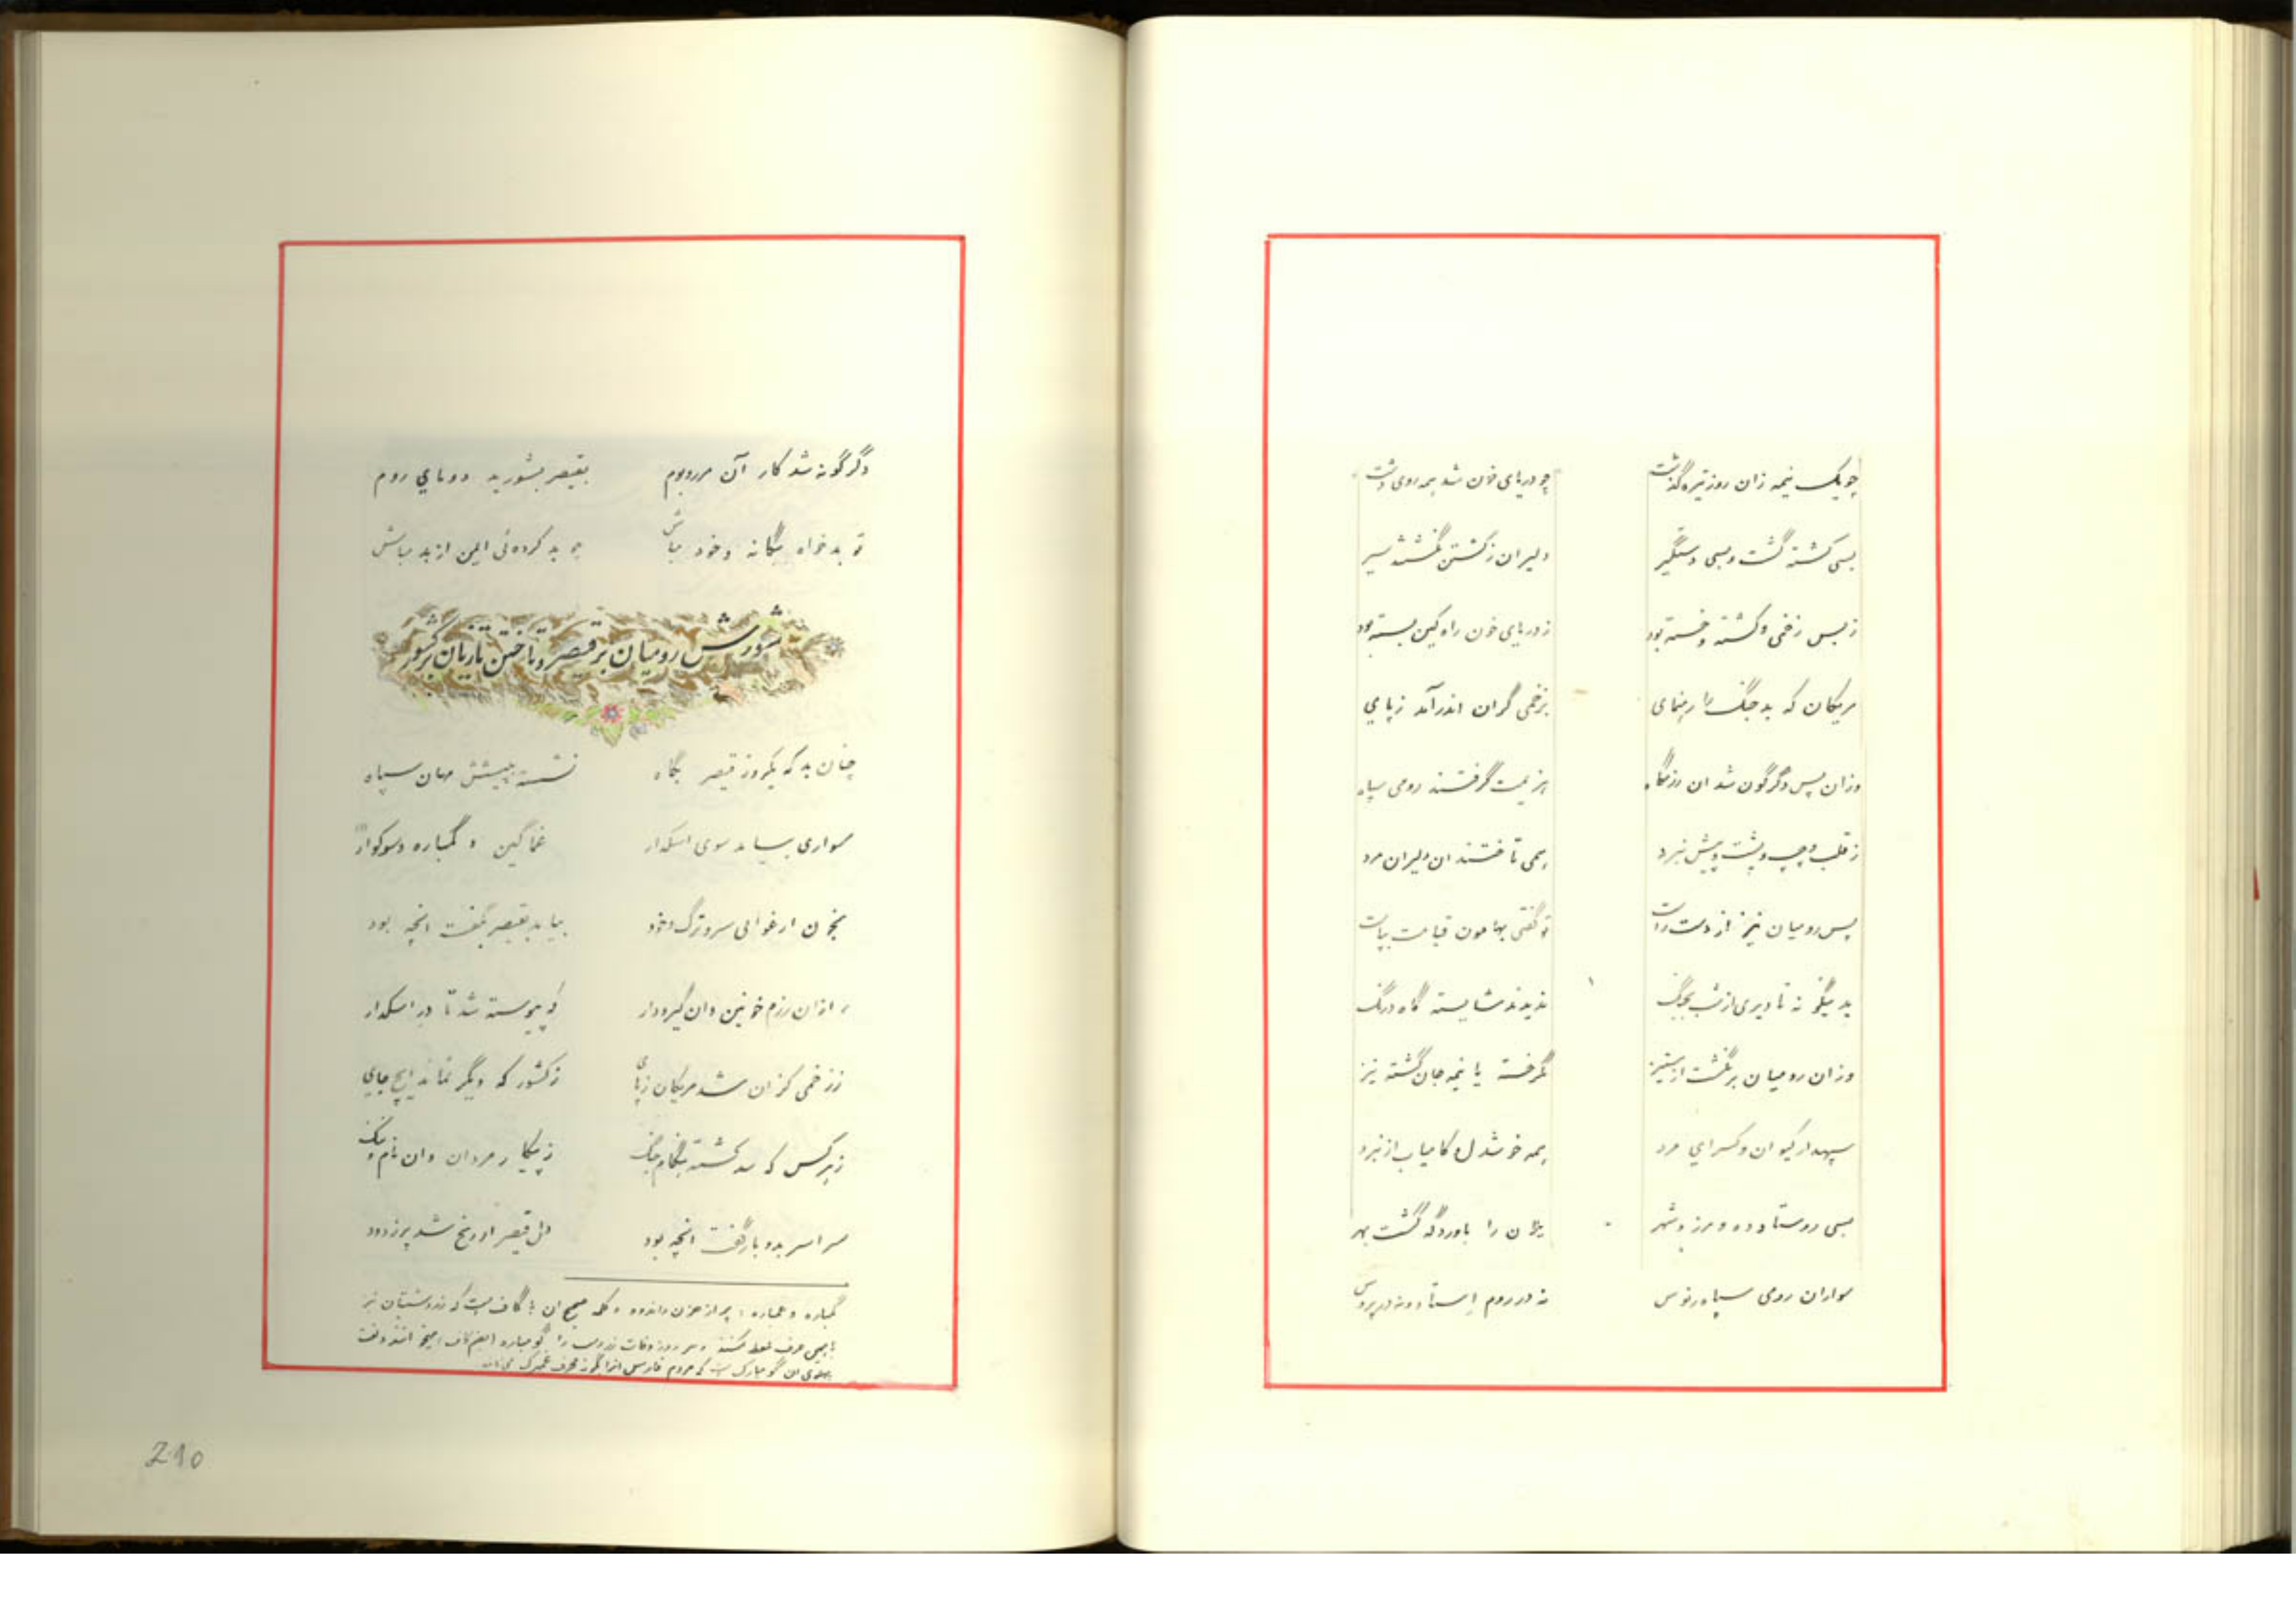 چو یک نیمه زان روز تیره گذشت چو دریای خون شد همه روی دشت
بسی کشته گشت و بسی دستگیر دلیران ز کشتن نگشتند سیر
ز بس زخمی و کشته و خسته بود ز دریای خون راه کین بسته بود
مریکان که بد جنگ را رهنمای بزخمی گران اندر آمد ز پای
وزان پس دگرگون شد ان رزمگاه هزیمت گرفتند رومی سپاه
ز قلب و چپ و پشت و پیش نبرد همی تاختند ان دلیران مرد
پس رومیان نیز از دست راست تو گفتی بهامون قیامت بپاست
بدینگونه تا دیری از شب بجنگ ندیدند شایسته گاه درنگ
وزان رومیان برنگشت از ستیز مگر خسته یا نیمه جان گشته نیز
سپهدار کیوان و کسرای مرد همه خوشدل و کامیاب از نبرد
بسی روستا و ده و مرز و شهر یلان را باوردگه گشت بهر
سواران رومی سپاه نه در روم استاد و نه در
دگرگونه شد کار آن مرز و بوم بقیصر بشورید دومای روم
تو بدخواه بیگانه و خود مباش چو بد کرده‌ئی ایمن از بد مباش
شورش رومیان بر قیصر و تاختن تازیان بر کشور
چنان بد که یکروز قیصر بگاه نشسته بپیشش مهان سپاه
سواری بیامد سوی اسکدار غماگین و گمباره و سوکوار
بخون ارغوانی سر و ترگ و خود بیامد بقیصر بگفت انچه بود
از ان رزم خونین وان گیرودار که پیوسته شد تا در اسکدار
ز زخمی گران شد مریکان ز پای ز کشور که دیگر نماند ایچ جای
ز هر کس که شد کشته هنگام جنگ ز پیکار مردان وان نام و ننگ
سراسر بدو بازگفت انچه بود دل قیصر از رنج شد پر ز دود
گمباره و غمباره : پر از حزن و اندوه و کلمه صحیح ان با گاف است که زردشتیان نیز
حرف غلط میکنند و سر روز وفات را گومباره
پهلوی ان گومبارک است که مردم فارس انرا
210